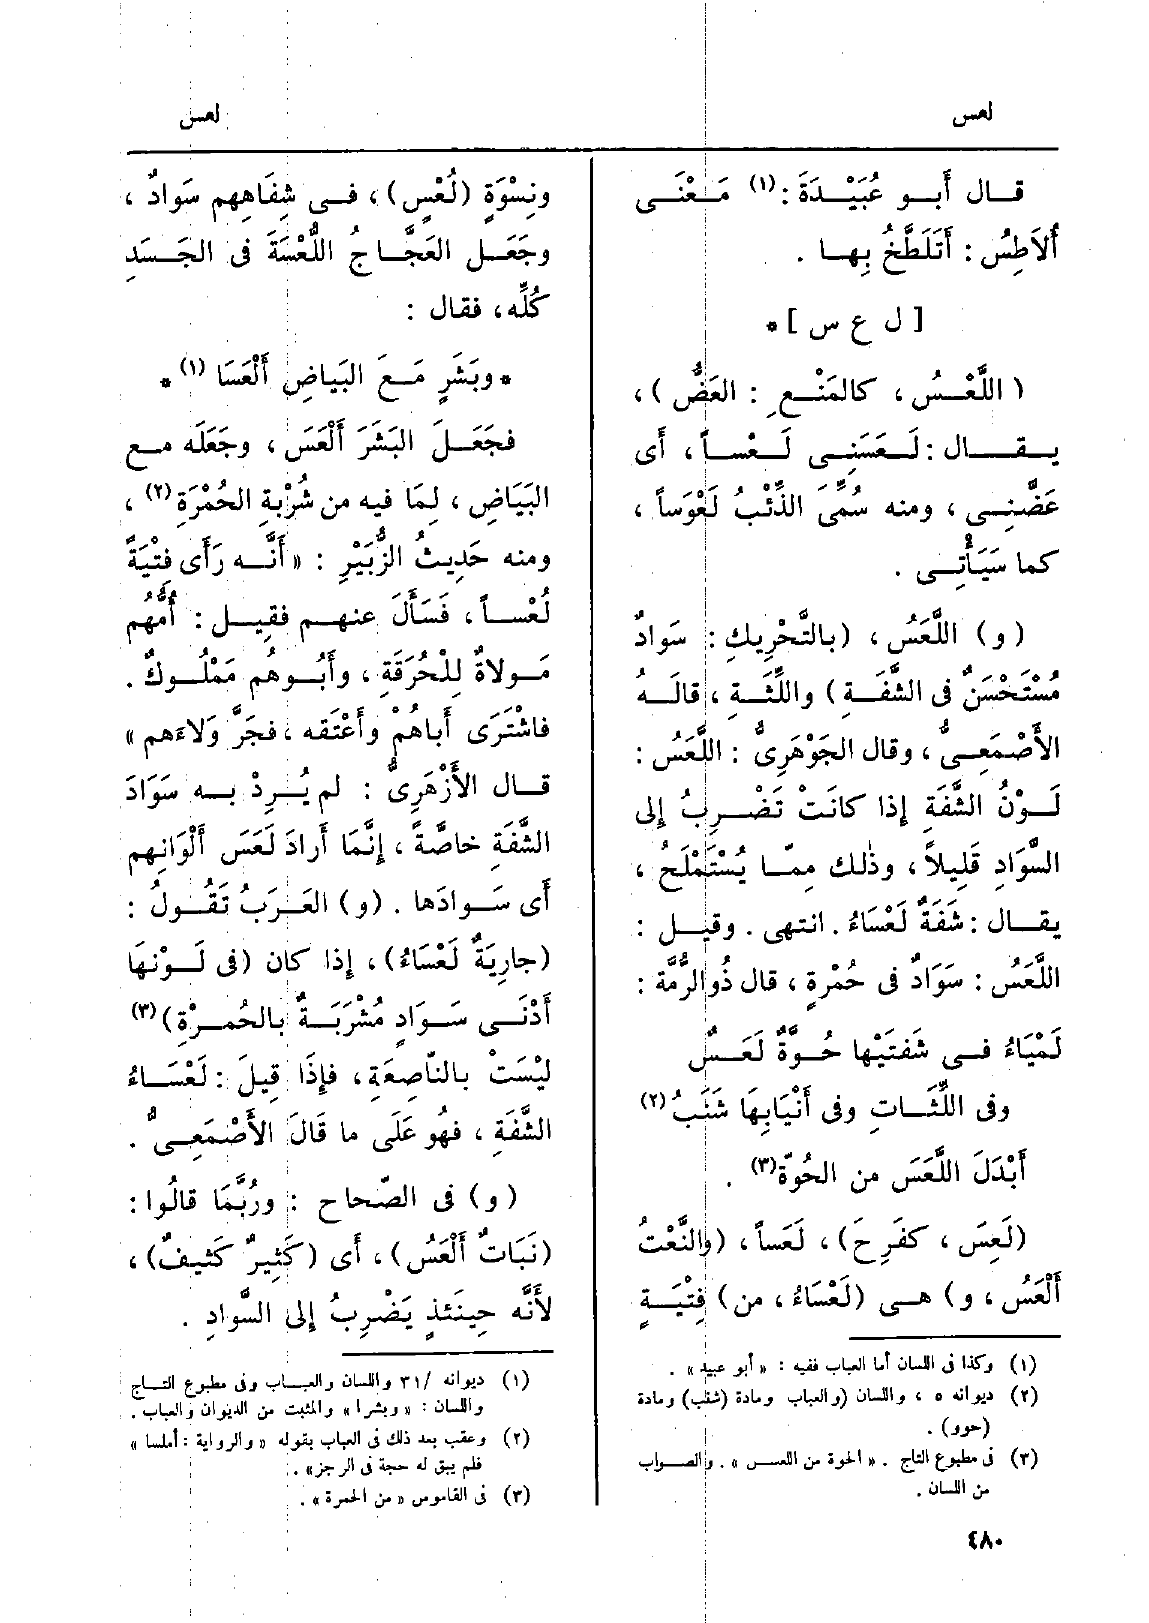 لعس
لعس
قال أبو عُبَيْدَةَ :(١) مَعْنَى
أُلاَطِسُ : أَتَلَطَّخُ بِها .
[ ل ع س ] *
( اللَّعْسُ ، كالمَنْعِ : العَضُّ ) ،
يقال : لَعَسَنِى لَعْساً ، أَى
عَضَّنِى ، ومنه سُمِّىَ الذِّئْبُ لَعْوَساً ،
كما سَيَأْتِى .
( و ) اللَّعَسُ ، (بالتَّحْرِيكِ : سَوَادٌ
مُسْتَحْسَنٌ فى الشَّفَةِ ) واللِّثَةِ ، قالَهُ
الأَصْمَعِىُّ ، وقال الجَوْهَرِىُّ : اللَّعَسُ :
لَوْنُ الشَّفَةِ إِذا كانَتْ تَضْرِبُ إِلى
السَّوَادِ قَلِيلاً ، وذٰلك مِمّا يُسْتَمْلَحُ ،
يقال : شَفَةٌ لَعْسَاءُ . انتهى . وقيل :
اللَّعَسُ : سَوَادٌ فى حُمْرةٍ ، قال ذُو الرُّمَّة :
لَمْيَاءُ فى شفَتَيْها حُوَّةٌ لَعَسٌ
وفى اللِّثَاتِ وفى أَنْيَابِهَا شَنَبُ (٢)
أَبْدَلَ اللَّعَسَ من الحُوّة(٣) .
(لَعِسَ ، كفَرِحَ ) ، لَعَساً ، (والنَّعْتُ
أَلْعَسُ ، و) هى (لَعْسَاءُ ، من) فِتْيَةٍ
(١) وكذا فى اللسان أما العباب ففيه : « أبو عبيد » .
(٢) ديوانه ٥ ، واللسان (والعباب ومادة (شنب) ومادة
(حوو) .
(٣) فى مطبوع التاج . « الحوة من اللعس » . والصواب
من اللسان .
ونِسْوَةٍ (لُعْسٍ) ، فى شِفَاهِهِم سَوادٌ ،
وجَعَل العَجّاجُ اللُّعْسَةَ فى الجَسَدِ
كُلِّه ، فقال :
* وبَشَرٍ مَعَ البَياضِ أَلْعَسَا (١) *
فجَعَلَ البَشَرَ أَلْعَسَ ، وجَعَلَه مع
البَيَاضِ ، لِمَا فيه من شُرْبةِ الحُمْرَةِ (٢) ،
ومنه حَدِيثُ الزُّبَيْرِ : « أَنَّه رَأَى فتْيَةً
لُعْساً ، فَسَأَلَ عنهم فقِيل : أُمُّهُم
مَولاةٌ لِلْحُرَقَةِ ، وأَبُوهُم مَمْلُوكٌ .
فاشْتَرَى أَباهُمْ وأَعْتَقه ، فجَرَّ وَلاءَهم »
قال الأَزْهَرِىُّ : لم يُرِدْ به سَوَادَ
الشَّفَةِ خاصَّةً ، إِنَّمَا أَرادَ لَعَسَ أَلْوَانِهِم
أَى سَوادَها . (و) العَرَبُ تَقُولُ :
(جارِيَةٌ لَعْسَاءُ) ، إِذا كان (فى لَوْنِها
أَدْنَى سَوادٍ مُشْرَبَةٌ بالحُمرْةِ) (٣)
لَيْسَتْ بالنّاصِعَةِ ، فإِذَا قِيلَ : لَعْسَاءُ
الشَّفَةِ ، فهُو عَلَى ما قَالَ الأَصْمَعِىُّ .
(و) فى الصّحاح : ورُبَّمَا قالُوا :
(نَبَاتٌ أَلْعَسُ) ، أَى (كَثِيرٌ كَثيفٌ) ،
لأَنَّه حِينَئذٍ يَضْرِبُ إِلى السَّوادِ .
(١) ديوانه /٣١ واللسان والعباب وفى مطبوع التاج
واللسان : « وبشرا » والمثبت من الديوان والعباب .
(٢) وعقب بعد ذلك فى العباب بقوله « والرواية : أملسا »
فلم يبق له حجة فى الرجز » .
(٣) فى القاموس « من الحمرة » .
٤٨٠